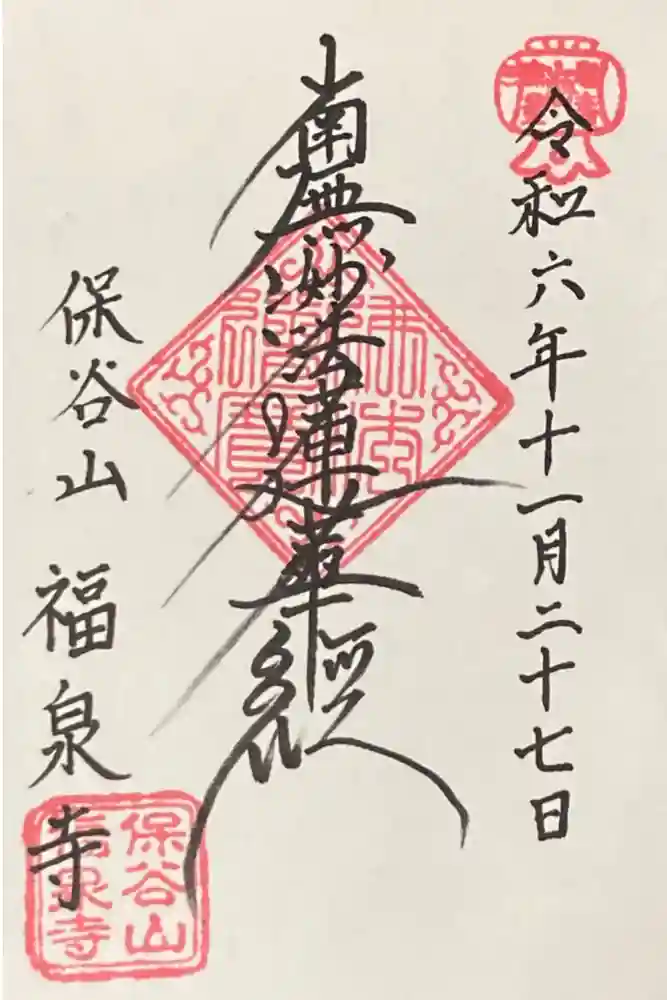 令和六年十一月二十七日
南無妙法蓮華經
保谷山 福泉寺
保谷山
福泉寺